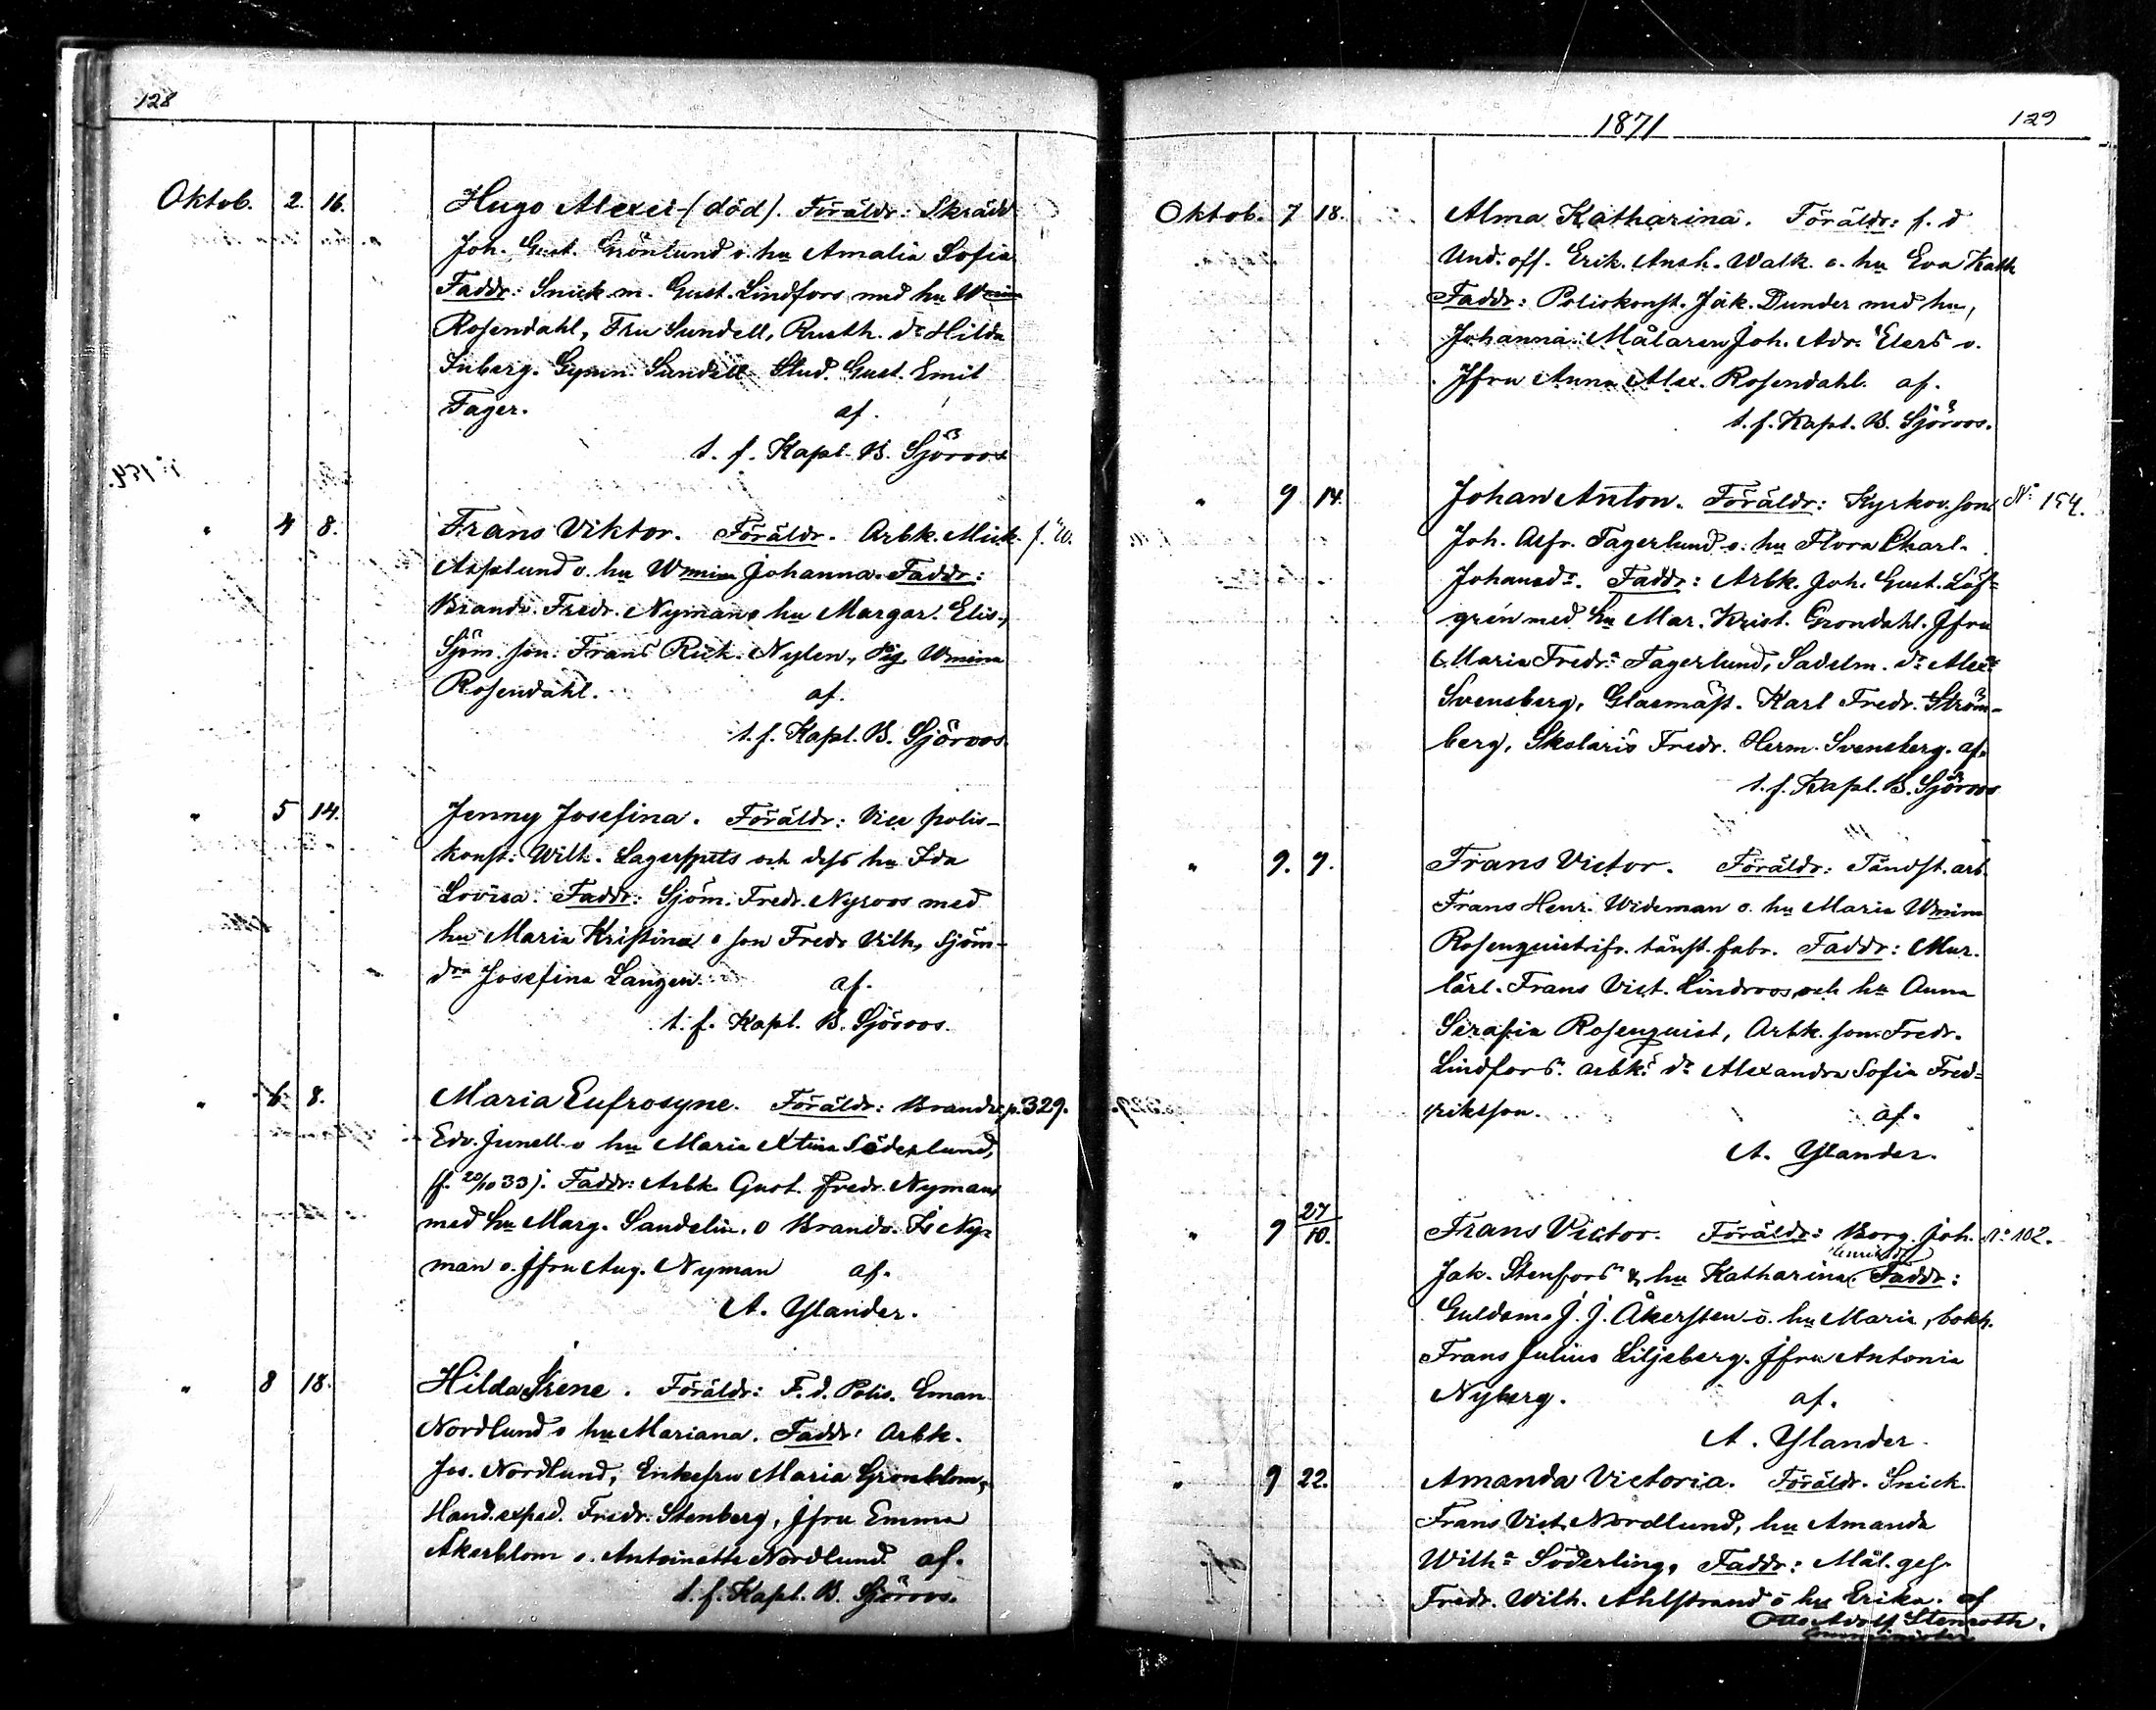 128
Oktob. 2. 16. Hugo Alexei (död). Föräldr: Skrädd
Joh. Gust. Grönlund o. hu Amalia Sofia
Faddr: Snick. m. Gust. Lindfors med hu Wmina
Rosendahl, Fru Sundell, Rusth. dr Hilda
Inberg. Gymn. Sundell Stud. Gust. Emil
Fager. af.
t. f. Kapl. B. Sjöroos
" 4 8. Frans Viktor. Föräldr. Arbk. Mick. f. W.
Asplund o. hu Wmina Johanna. Faddr:
Brandv. Fredr. Nyman o hu Margar. Elis.,
Sjöm. son. Frans Rick. Nylen, Pig. Wmina
Rosendahl. af.
t. f. Kapl. B. Sjöroos.
" 5 14. Jenny Josefina. Föräldr: Vice polis-
konst: Wilh. Lagerspets och dess hu Ida
Lovisa. Faddr: Sjöm. Fredr. Nyroos med
hu Maria Kristina o son Fredr Vilh, Sjöm-
dra Josefina Langen. af.
t. f. Kapl. B. Sjöroos.
" 6. 8. Maria Eufrosyne. Föräldr: Brandv. p. 329.
Edv. Junell o hu Maria Xtina Söderlund,
(f. 20/10 33). Faddr: Arbk Gust. Fredr. Nyman
med hu Marg. Sandelin. o Brandv. Fr Ny-
man o. Jfru Aug. Nyman af.
A. Ylander.
" 8 18. Hilda Irene. Föräldr: F. d. Polis. Eman
Nordlund o hu Mariana. Faddr: Arbk.
Jos. Nordlund, Enkefru Maria Gronblom,
Hand. exped. Fredr. Stenberg, Jfru Emma
Åkerblom o. Antoinette Nordlund. af.
t. f. Kapl. B. Sjöroos.
1871
129
Oktob. 7 18. Alma Katharina. Föräldr: f. d
Und. off. Erik. Walk. o. hu Eva Kath
Faddr: Poliskonst. Jak. Dunder med hu,
Johanna. Målaren Joh. Adr. Elers o.
Jfru Anna Alex. Rosendahl. af.
t. f. Kapl. B. Sjöroos.
" 9 14. Johan Anton. Föräldr: Kyrkov. son No 154.
Joh. Alfr. Fagerlund o. hu Flora Charl.
Johansdr. Faddr: Arbk. Joh. Gust. Löf-
grén med hu Mar. Krist. Grondahl. Jfru
Maria Fredr: Fagerlund, Sadelm. dr Alex:
Svensberg, Glasmäst. Karl Fredr. Ström-
berg, Skolaris Fredr. Herm. Svensberg. af.
t. f. Kapl. B. Sjöroos
" 9. 9. Frans Victor. Föräldr: Tändst. arb.
Frans Henr. Wideman o. hu Maria Wmina
Rosenquist ifr. tänst. fabr. Faddr: Mur.
lärl. Frans Vict. Lindroos och hu Anna
Serafia Rosenquist, Arbk. son Fredr.
Lindfors. arbk: dr Alexandra Sofia Fred-
riksson. af.
A. Ylander.
" 9 27/10. Frans Victor. Föräldr: Borg. Joh. No 102.
Jak. Stenfors & hu Katharina Henriksdr Faddr:
Guldsm. J. J. Åkersten o. hu Maria, bokh.
Frans Julius Liljeberg. Jfru Antonia
Nyberg. af.
A. Ylander.
" 9 22. Amanda Victoria. Föräldr. Snick.
Frans Vict. Nordlund, hu Amanda
Wilha Söderling, Faddr: Mål. ges.
Fredr. Wilh. Ahlstrand o hu Erika. af
Otto Adolf Stenroth.